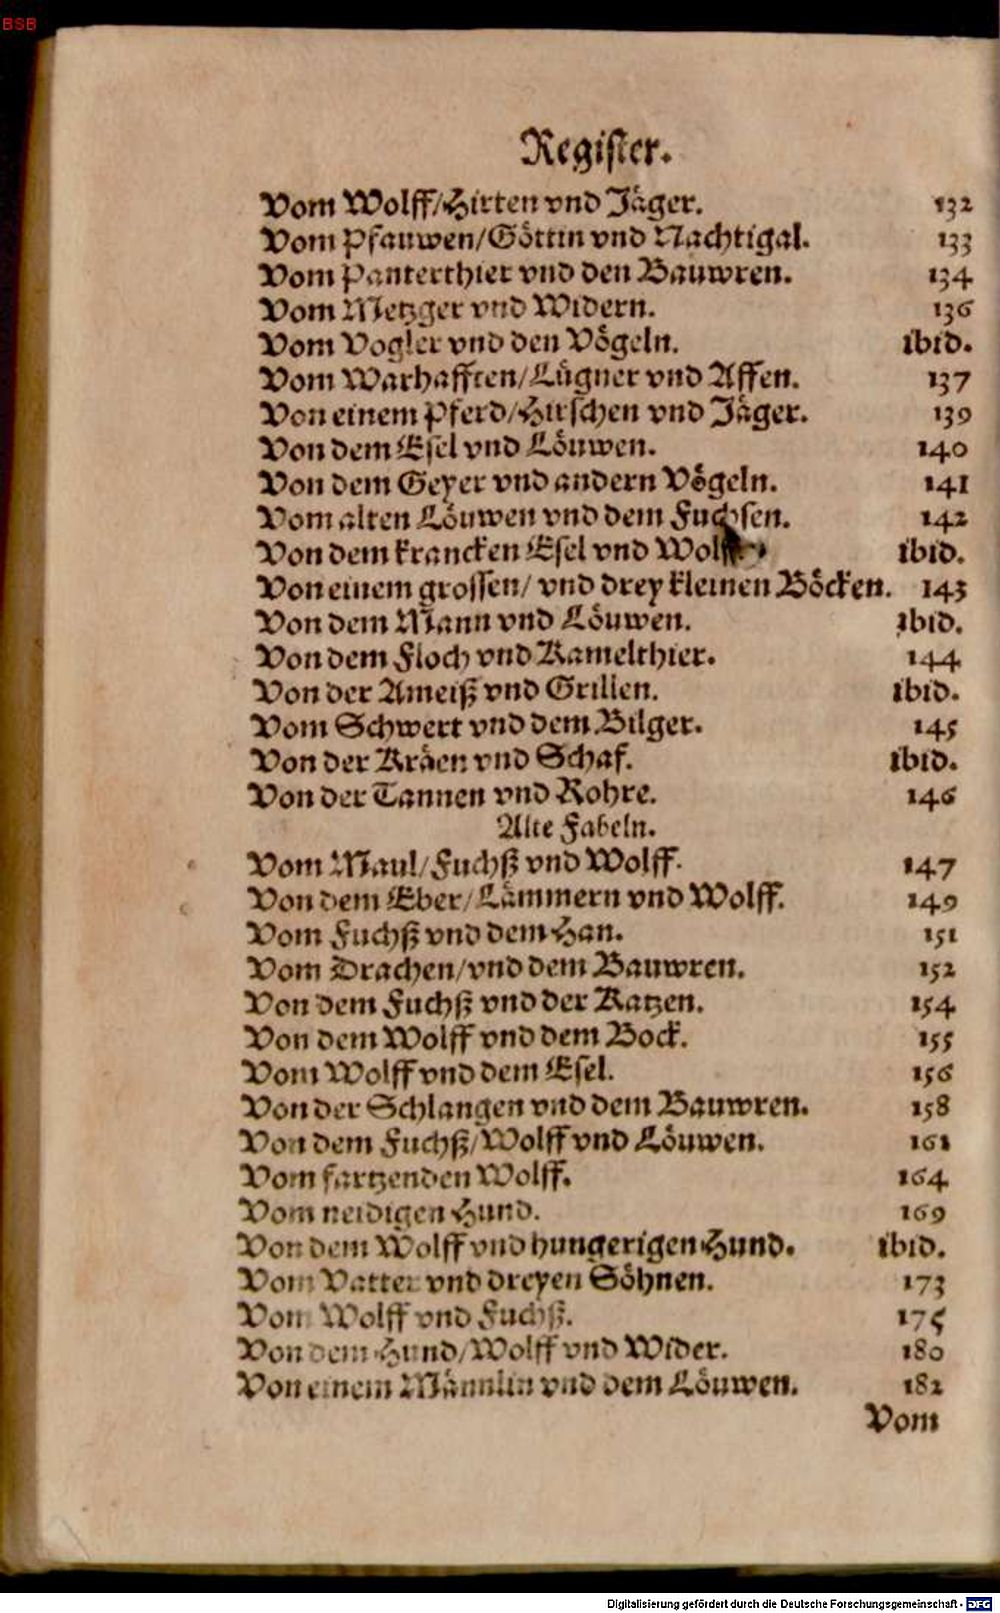 BSB
Register.
Vom Wolff/Hirten vnd Jäger. 132
Vom Pfauwen/Göttin vnd Nachtigal. 133
Vom Panterthier vnd den Bauwren. 134
Vom Metzger vnd Widern. 136
Vom Vogler vnd den Vögeln. ibid.
Vom Warhafften/Lügner vnd Affen. 137
Von einem Pferd/Hirschen vnd Jäger. 139
Von dem Esel vnd Löuwen. 140
Von dem Geyer vnd andern Vögeln. 141
Vom alten Löuwen vnd dem Fuchsen. 142
Von dem krancken Esel vnd Wolff. ibid.
Von einem grossen/ vnd drey kleinen Böcken. 143
Von dem Mann vnd Löuwen. ibid.
Von dem Floch vnd Kamelthier. 144
Von der Ameiß vnd Grillen. ibid.
Vom Schwert vnd dem Bilger. 145
Von der Kräen vnd Schaf. ibid.
Von der Tannen vnd Rohre. 146
Alte Fabeln.
Vom Maul/Fuchß vnd Wolff. 147
Von dem Eber/Lämmern vnd Wolff. 149
Vom Fuchß vnd dem Han. 151
Vom Drachen/vnd dem Bauwren. 152
Von dem Fuchß vnd der Katzen. 154
Von dem Wolff vnd dem Bock. 155
Vom Wolff vnd dem Esel. 156
Von der Schlangen vnd dem Bauwren. 158
Von dem Fuchß/Wolff vnd Löuwen. 161
Vom fartzenden Wolff. 164
Vom neidigen Hund. 169
Von dem Wolff vnd hungerigen Hund. ibid.
Vom Vatter vnd dreyen Söhnen. 173
Vom Wolff vnd Fuchß. 175
Von dem Hund/Wolff vnd Wider. 180
Von einem Männlin vnd dem Löuwen. 182
Vom
Digitalisierung gefördert durch die Deutsche Forschungsgemeinschaft - DFG